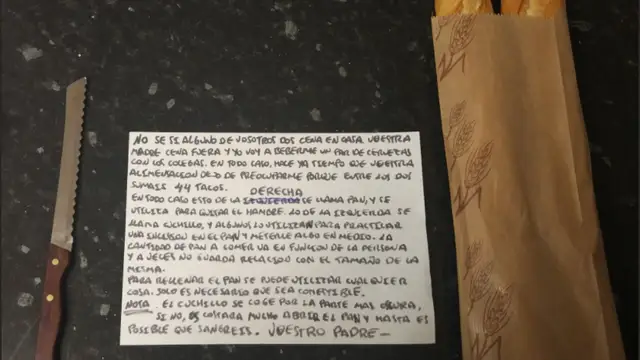 NO SE SI ALGUNO DE VOSOTROS DOS CENA EN CASA. VUESTRA
MADRE CENA FUERA Y YO VOY A BEBERME UN PAR DE CERVEZAS
CON LOS COLEGAS. EN TODO CASO, HACE YA TIEMPO QUE VUESTRA
ALIMENTACION DEJO DE PREOCUPARME PORQUE ENTRE LOS DOS
SUMAIS 44 TACOS.
DERECHA
EN TODO CASO ESTO DE LA IZQUIERDA SE LLAMA PAN, Y SE
UTILIZA PARA QUITAR EL HAMBRE. LO DE LA IZQUIERDA SE
LLAMA CUCHILLO, Y ALGUNOS LO UTILIZAN PARA PRACTICAR
UNA INCISION EN EL PAN Y METERLE ALGO EN MEDIO. LA
CANTIDAD DE PAN A COMER VA EN FUNCION DE LA PERSONA
Y A VECES NO GUARDA RELACION CON EL TAMAÑO DE LA
MISMA.
PARA RELLENAR EL PAN SE PUEDE UTILITAR CUALQUIER
COSA. SOLO ES NECESARIO QUE SEA COMESTIBLE.
NOTA EL CUCHILLO SE COGE POR LA PARTE MAS OSCURA,
SI NO, OS COSTARA MUCHO ABRIR EL PAN Y HASTA ES
POSIBLE QUE SANGREIS. VUESTRO PADRE—